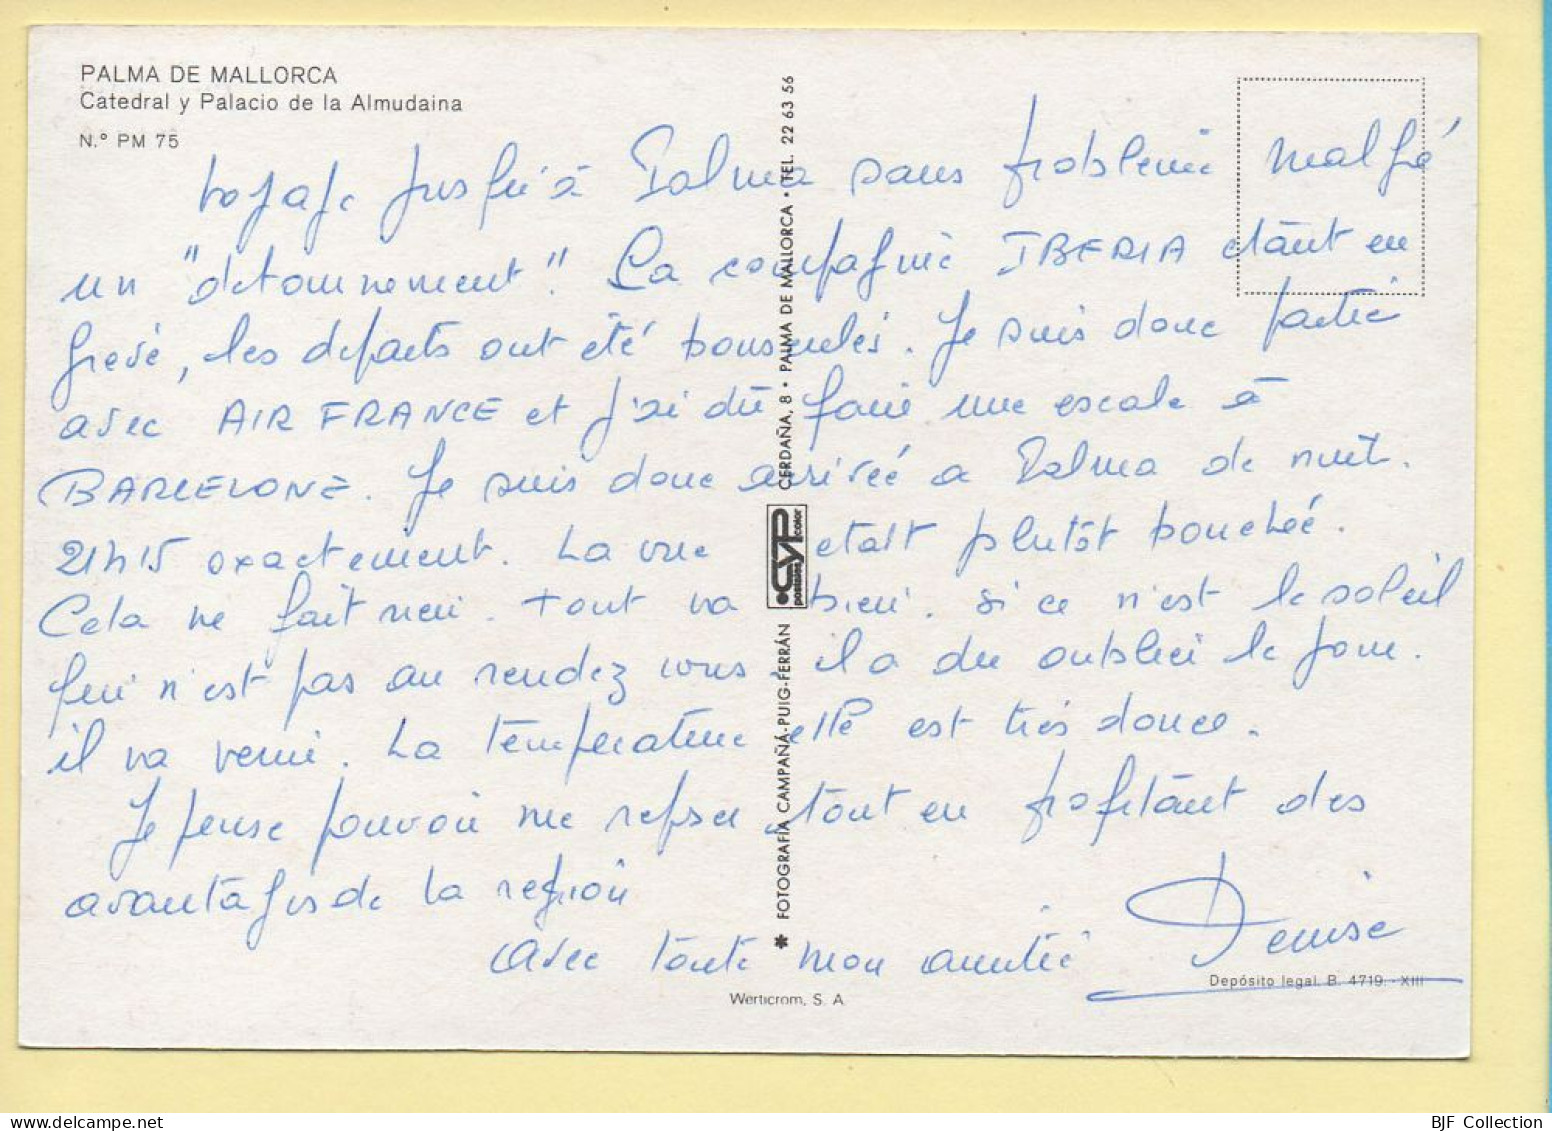 PALMA DE MALLORCA
Catedral y Palacio de la Almudaina
N.º PM 75
voyage jusqu'à Palma sans problème malgré
un "detournement". La compagnie IBERIA etant en
greve, les departs ont été bousculés. Je suis donc partie
avec AIR FRANCE et j'ai dû faire une escale à
BARCELONE. Je suis donc arrivée a Palma de nuit.
21h15 exactement. La vue etait plutôt bouchée.
Cela ne fait rien. tout va bien. si ce n'est le soleil
qui n'est pas au rendez vous. il a du oublier le jour.
il va venir. La température elle est très douce.
Je pense pouvoir me reposer tout en profitant des
avantages de la region
avec toute mon amitié Denise
✱ FOTOGRAFÍA CAMPAÑÁ-PUIG-FERRÁN
CYP
postales color
CERDAÑA, 8 • PALMA DE MALLORCA • TEL. 22 63 56
Depósito legal. B. 4719. - XIII
Werticrom, S. A.
BJF Collection